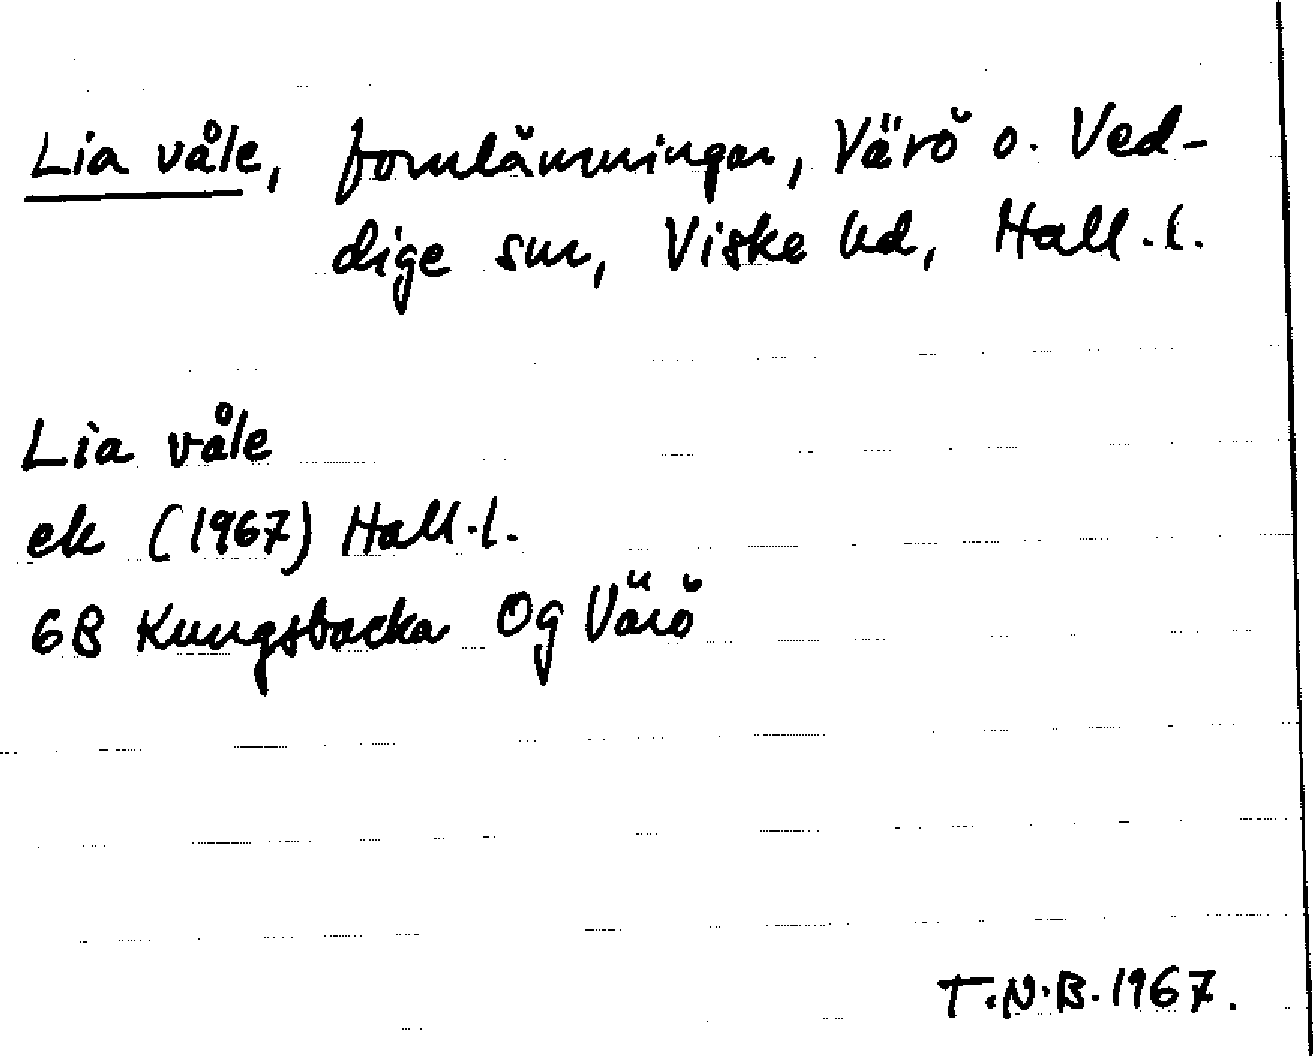 Lia våle, fornlämningar, Värö o. Ved-
dige snr, Viske hd, Hall.l.
Lia våle
ek (1967) Hall.l.
6B Kungsbacka 0g Värö
T.N.B. 1967.